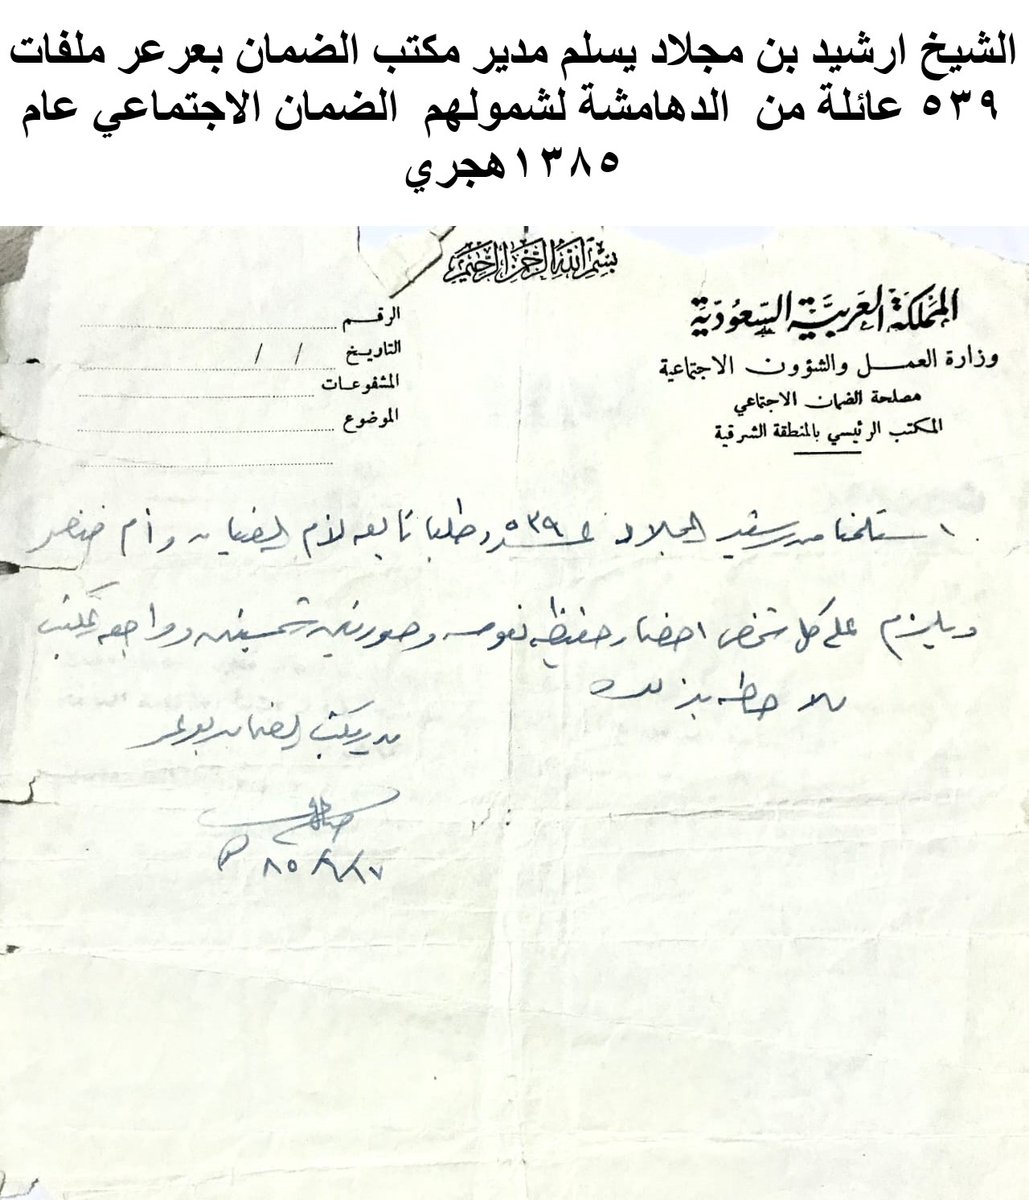 الشيخ ارشيد بن مجلاد يسلم مدير مكتب الضمان بعرعر ملفات
٥٣٩ عائلة من الدهامشة لشمولهم الضمان الاجتماعي عام
١٣٨٥هجري
بسم الله الرحمن الرحيم
المملكة العربية السعودية
وزارة العمل والشؤون الاجتماعية
مصلحة الضمان الاجتماعي
المكتب الرئيسي بالمنطقة الشرقية
الرقم
التاريخ / /
المشفوعات
الموضوع
استلمنا من رشيد المجلاد عدد ٥٣٩ طلبا تابعه لأم الضيان وأم خنصر
ويلزم على كل شخص احضار حفيظه نفوسه وصورتين شمسيتين ومراجعه المكتب
للاحاطه بذلك
مدير مكتب الضمان بعرعر